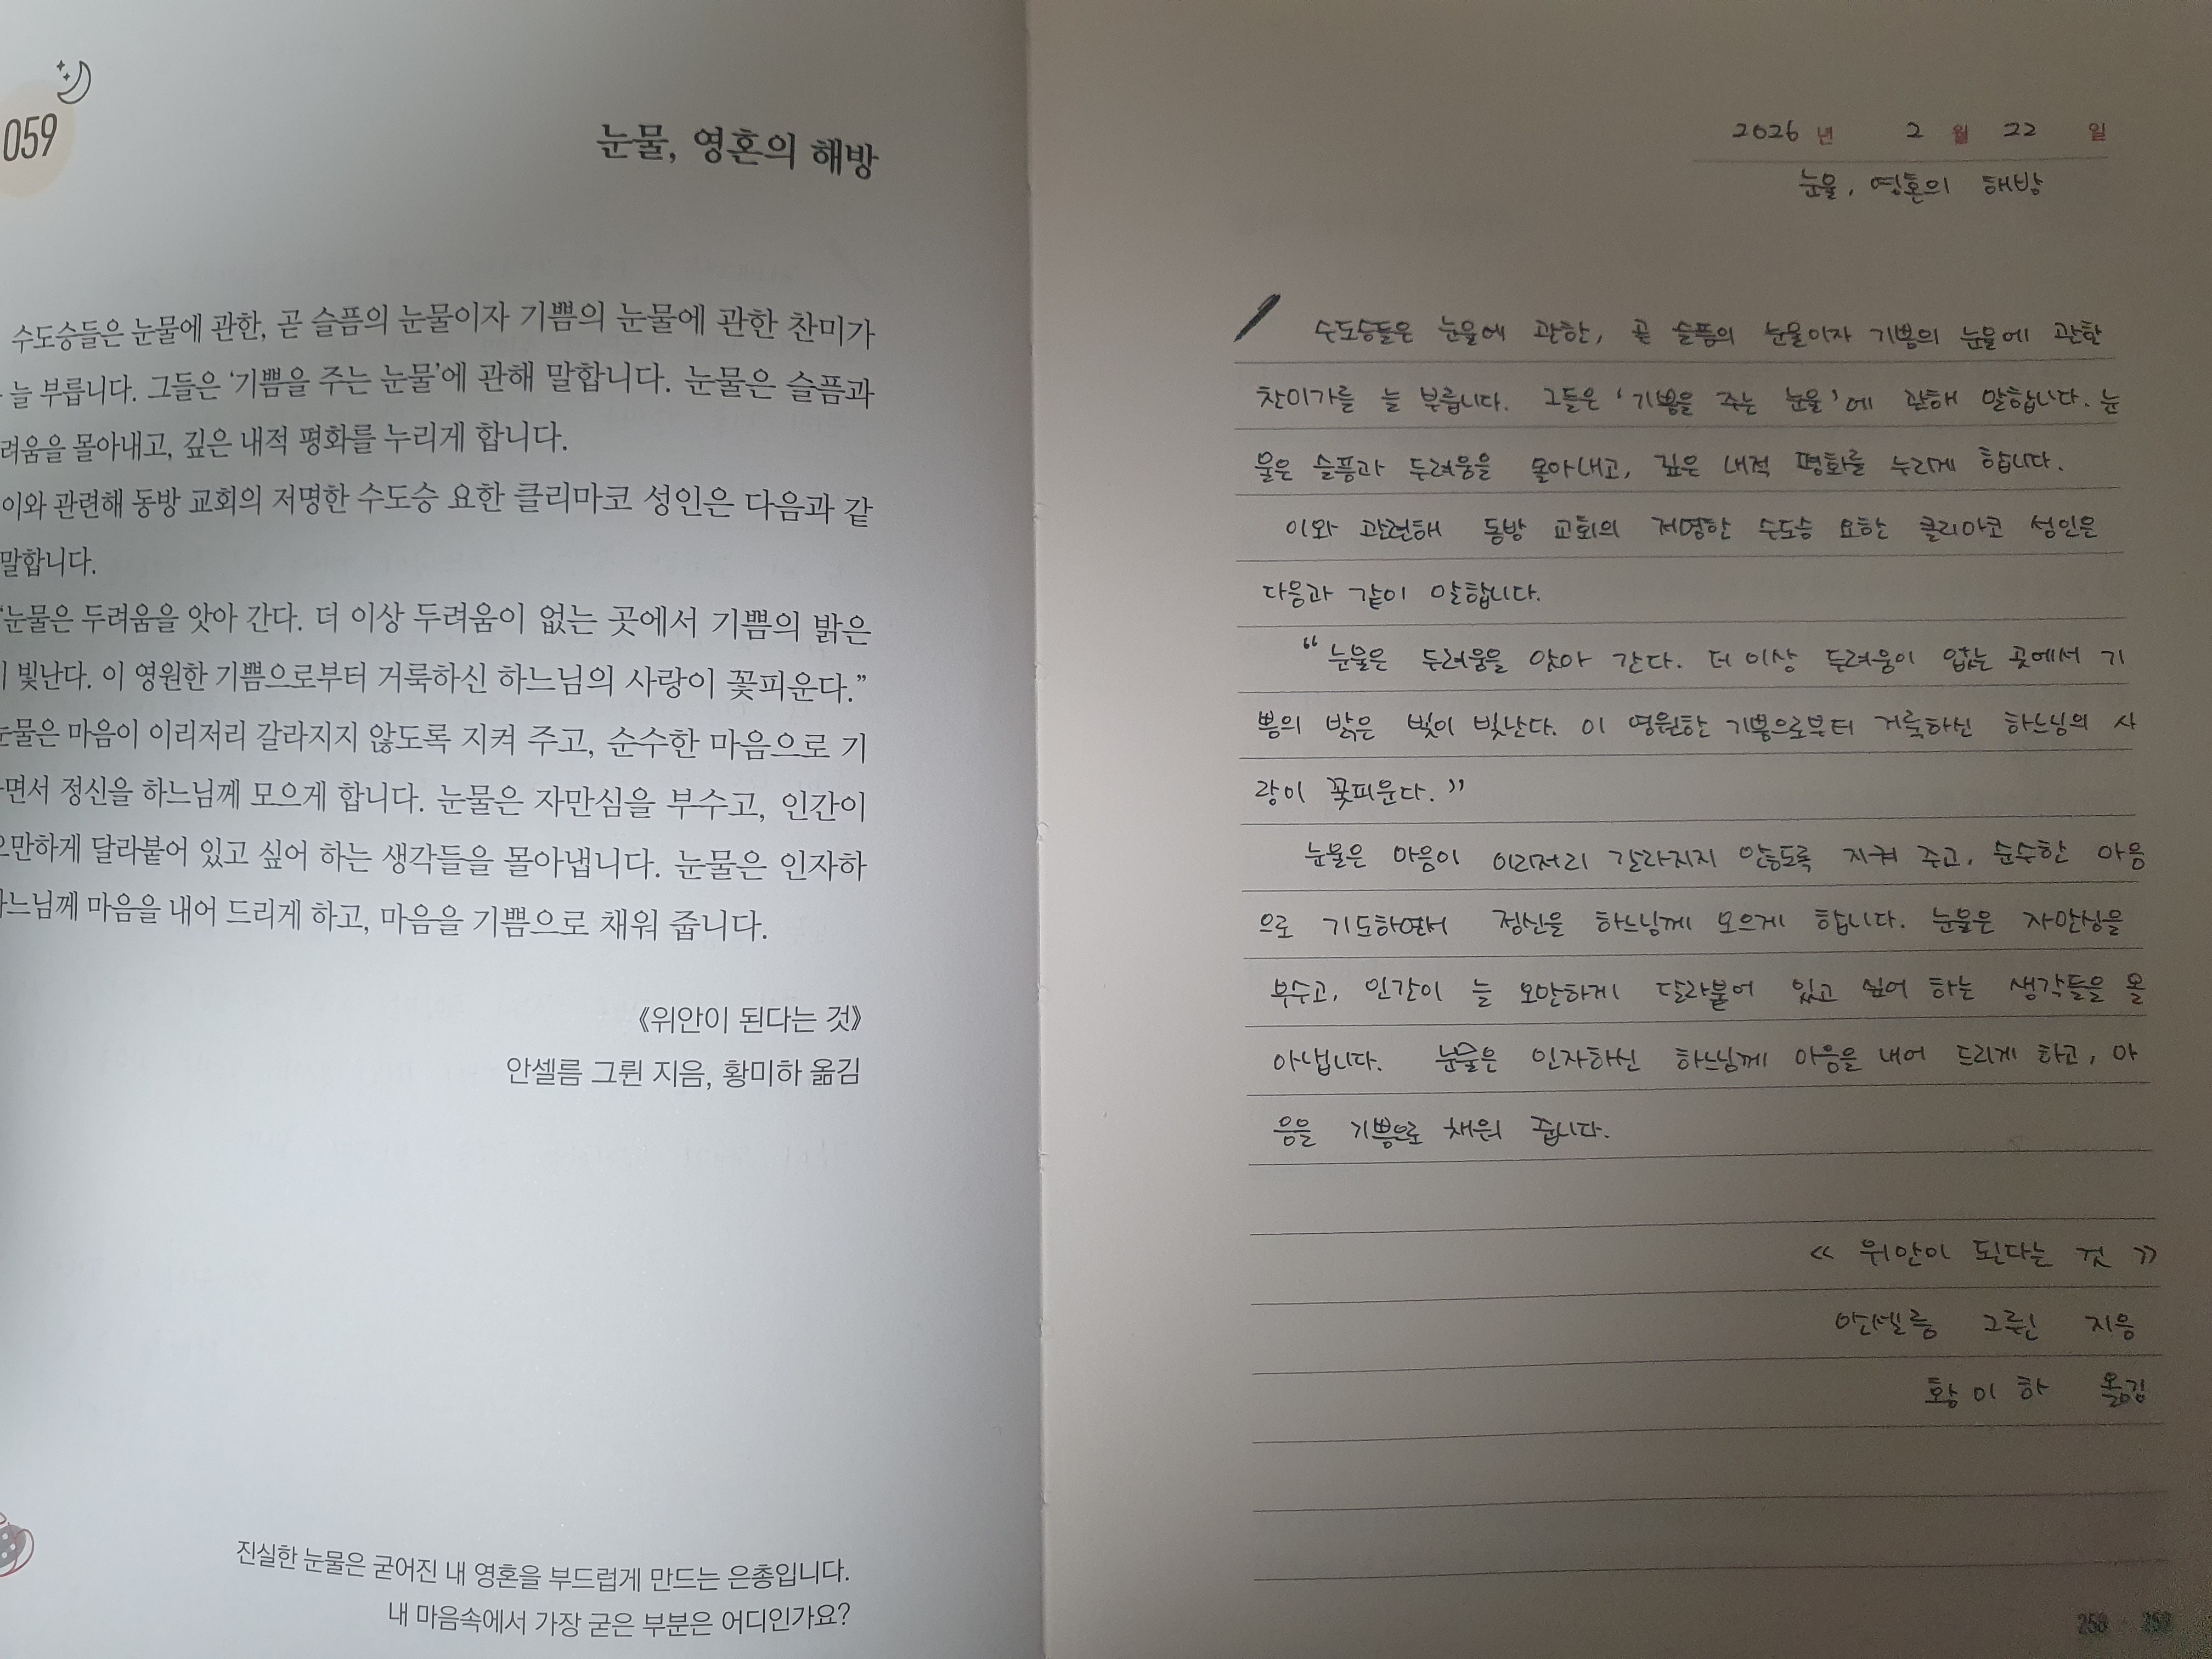 059
눈물, 영혼의 해방
수도승들은 눈물에 관한, 곧 슬픔의 눈물이자 기쁨의 눈물에 관한 찬미가
늘 부릅니다. 그들은 ‘기쁨을 주는 눈물’에 관해 말합니다. 눈물은 슬픔과
려움을 몰아내고, 깊은 내적 평화를 누리게 합니다.
이와 관련해 동방 교회의 저명한 수도승 요한 클리마코 성인은 다음과 같
말합니다.
“눈물은 두려움을 앗아 간다. 더 이상 두려움이 없는 곳에서 기쁨의 밝은
빛난다. 이 영원한 기쁨으로부터 거룩하신 하느님의 사랑이 꽃피운다.”
눈물은 마음이 이리저리 갈라지지 않도록 지켜 주고, 순수한 마음으로 기
면서 정신을 하느님께 모으게 합니다. 눈물은 자만심을 부수고, 인간이
오만하게 달라붙어 있고 싶어 하는 생각들을 몰아냅니다. 눈물은 인자하
하느님께 마음을 내어 드리게 하고, 마음을 기쁨으로 채워 줍니다.
《위안이 된다는 것》
안셀름 그륀 지음, 황미하 옮김
진실한 눈물은 굳어진 내 영혼을 부드럽게 만드는 은총입니다.
내 마음속에서 가장 굳은 부분은 어디인가요?
2026 년 2 월 22 일
눈물, 영혼의 해방
수도승들은 눈물에 관한, 곧 슬픔의 눈물이자 기쁨의 눈물에 관한
찬미가를 늘 부릅니다. 그들은 ‘기쁨을 주는 눈물’에 관해 말합니다. 눈
물은 슬픔과 두려움을 몰아내고, 깊은 내적 평화를 누리게 합니다.
이와 관련해 동방 교회의 저명한 수도승 요한 클리마코 성인은
다음과 같이 말합니다.
“눈물은 두려움을 앗아 간다. 더 이상 두려움이 없는 곳에서 기
쁨의 밝은 빛이 빛난다. 이 영원한 기쁨으로부터 거룩하신 하느님의 사
랑이 꽃피운다.”
눈물은 마음이 이리저리 갈라지지 않도록 지켜 주고, 순수한 마음
으로 기도하면서 정신을 하느님께 모으게 합니다. 눈물은 자만심을
부수고, 인간이 늘 오만하게 달라붙어 있고 싶어 하는 생각들을 몰
아냅니다. 눈물은 인자하신 하느님께 마음을 내어 드리게 하고, 마
음을 기쁨으로 채워 줍니다.
《 위안이 된다는 것 》
안셀름 그륀 지음
황미하 옮김
258